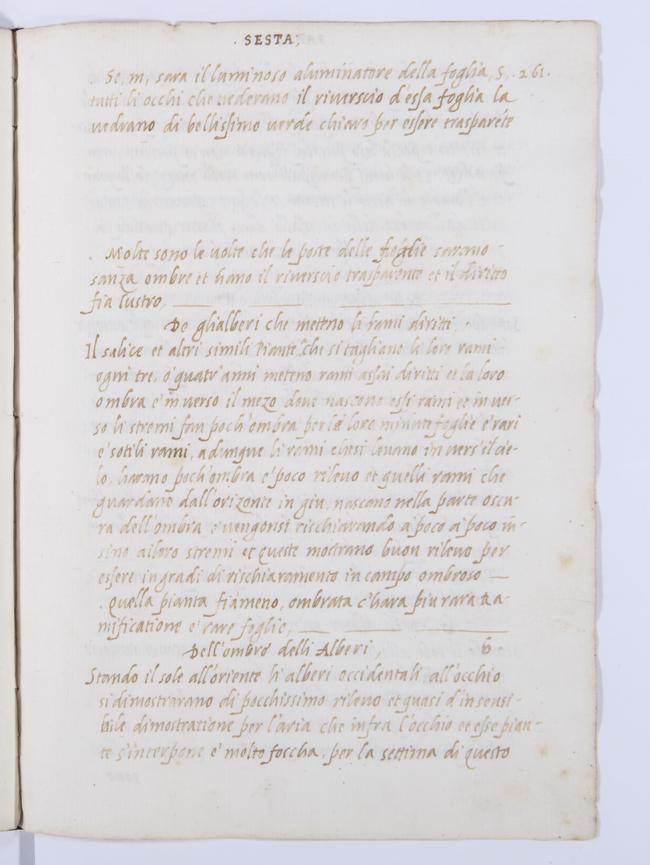 . SESTA;
Se, m, sara il luminoso aluminatore della foglia, S, . 261.
tutti li occhi che vederano il riverscio d'essa foglia la
vedrano di bellissimo verde chiaro per essere trasparete
. Molte sono le volte che le poste delle foglie sarano
sanza ombre et hano il riverscio trasparente et il diritto
fia lustro,
De glialberi che metteno li rami diritti, .
Il salice et altri simili Piante, che si tagliano li loro rami
ogni tre, o' quatr'anni meteno rami assai diritti et la loro
ombra e' inverso il mezo dove nascono essi rami et in ver-
so li stremi fan poch'ombra per le loro minute foglie e' rari
e' sotili rami, adunque li rami chesi levano in vers'il cie-
lo, harano poch'ombra e' poco rilevo et quelli rami che
guardano dall'orizonte in giu, nascono nella parte oscu-
ra dell'ombra e' vengonsi rischiarando a' poco a' poco in-
sino ailoro stremi et queste mostrano buon rilevo per
essere ingradi di rischiaramento in campo ombroso
. quella pianta fia meno, ombrata c'hara piu rara Ra-
mificatione e' rare foglie,
Dell'ombre delli Alberi,
Stando il sole all'oriente li alberi occidentali, all'occhio
si dimostrarano di pocchissimo rilevo et quasi d'insensi-
bile dimostratione per l'aria che infra l'occhio et esse pian-
te s'interpone e' molto foscha, per la settima di questo